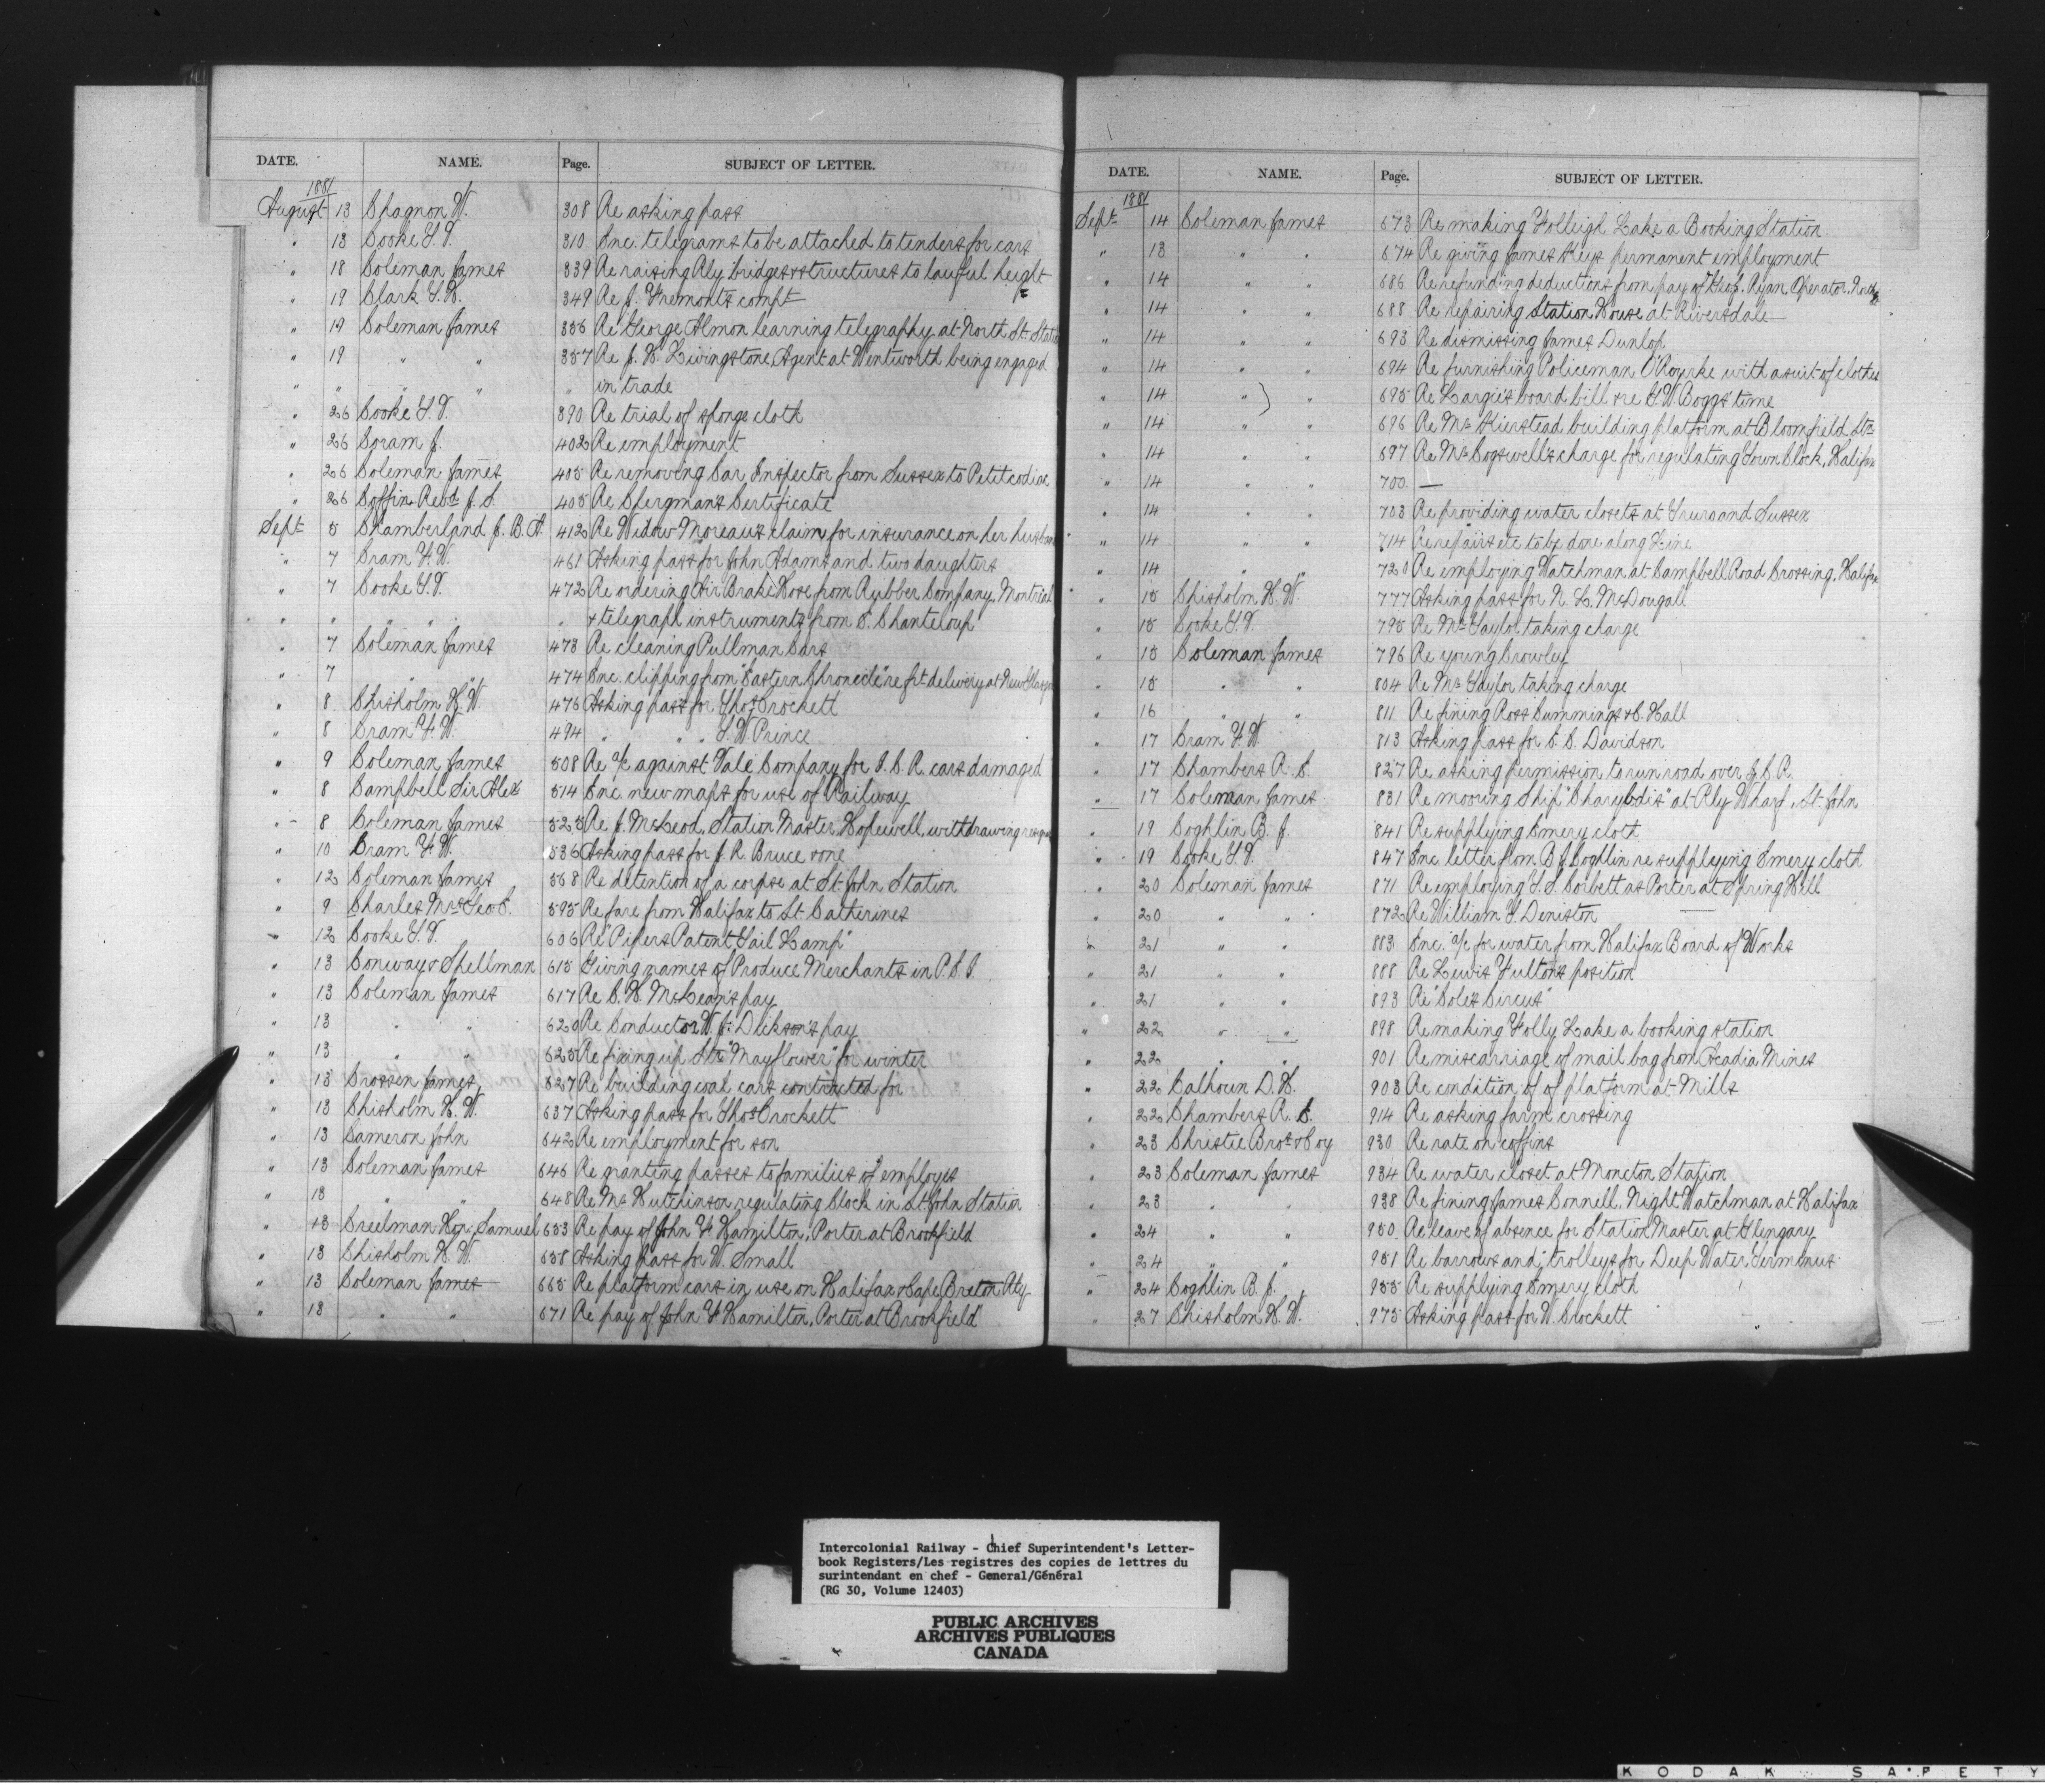 DATE. NAME. Page. SUBJECT OF LETTER.
1881
August 13 Chagnon W. 308 Re asking pass
" 13 Cooke T.V. 310 Enc. telegrams to be attached to tenders for cars
" 18 Coleman James 339 Re raising Rly bridges & structures to lawful height
" 19 Clark T.H. 349 Re J. Fremont's compt
" 19 Coleman James 356 Re George Almon learning telegraphy at North St. Statio
" 19 " " 357 Re J. H. Livingstone, Agent at Wentworth being engaged
" " " " " in trade
" 26 Cooke T.V. 390 Re trial of sponge cloth
" 26 Coram J. 402 Re employment
" 26 Coleman James 405 Re removing Car Inspector from Sussex to Petitcodiac
" 26 Coffin Revd J. S. 405 Re Clergman's Certificate
Sept 5 Chamberland J. B. A. 412 Re Widow Moreau's claim for insurance on her husban
" 7 Cram F.W. 461 Asking pass for John Adams and two daughters
" 7 Cooke T.V. 472 Re ordering Air Brake Hose from Rubber Company, Montreal
" " " " " & telegraph instruments from E. Chanteloup
" 7 Coleman James 473 Re cleaning Pullman Cars
" 7 " " 474 Enc. clipping from "Eastern Chronicle" re frt delivery at New Glasgow
" 8 Chisholm H.W. 476 Asking pass for Thos Crockett
" 8 Cram F.W. 494 " " " T.W. Prince
" 9 Coleman James 508 Re a/c against Vale Company for I.C.R. cars damaged
" 8 Campbell Sir Alex 514 Enc. new maps for use of Railway
" 8 Coleman James 525 Re J. McLeod, Station Master, Hopewell, withdrawing resig
" 10 Cram F.W. 536 Asking pass for J. R. Bruce & one
" 12 Coleman James 568 Re detention of a corpse at St. John Station
" 9 Charles Mrs Geo E. 595 Re fare from Halifax to St. Catherines
" 12 Cooke T.V. 606 Re "Pipers Patent Tail Lamp"
" 13 Conway & Spellman 615 Giving names of Produce Merchants in P.E.I.
" 13 Coleman James 617 Re C. H. McLean's pay
" 13 " " 620 Re Conductor W. J. Dickson's pay
" 13 " " 625 Re fixing up Str "Mayflower" for winter
" 13 Crossen James 627 Re building coal cars contracted for
" 13 Chisholm H.W. 637 Asking pass for Thos Crockett
" 13 Cameron John 642 Re employment for son
" 13 Coleman James 646 Re granting passes to families of employes
" 13 " " 648 Re Mr Hutchinson regulating Clock in St. John Station
" 13 Creelman Hon. Samuel 653 Re pay of John F. Hamilton, Porter at Brookfield
" 13 Chisholm H.W. 658 Asking pass for W. Small
" 13 Coleman James 665 Re platform cars in use on Halifax & Cape Breton Rly
" 13 " " 671 Re pay of John F. Hamilton, Porter at Brookfield
DATE. NAME. Page. SUBJECT OF LETTER.
1881
Sept 14 Coleman James 673 Re making Folleigh Lake a Booking Station
" 13 " " 674 Re giving James Keys permanent employment
" 14 " " 686 Re refunding deductions from pay of Thos. Ryan, Operator, North St
" 14 " " 688 Re repairing Station House at Riversdale
" 14 " " 693 Re dismissing James Dunlop
" 14 " " 694 Re furnishing Policeman O'Rourke with a suit of clothes
" 14 " " 695 Re Largie's board bill & re T.W. Boggs' time
" 14 " " 696 Re Mr Kierstead building platform at Bloomfield Stn
" 14 " " 697 Re Mr Cogswell's charge for regulating Town Clock, Halifax
" 14 " " 700 —
" 14 " " 703 Re providing water closets at Truro and Sussex
" 14 " " 714 Re repairs etc to be done along Line
" 14 " " 720 Re employing Watchman at Campbell Road Crossing, Halifax
" 15 Chisholm H.W. 777 Asking pass for N. L. McDougall
" 15 Cooke T.V. 795 Re Mr Taylor taking charge
" 15 Coleman James 796 Re young Crowley
" 15 " " 804 Re Mr Taylor taking charge
" 16 " " 811 Re fining Ross Cummings & C. Hall
" 17 Cram F.W. 813 Asking pass for C. C. Davidson
" 17 Chambers R. E. 827 Re asking permission to run road over I.C.R.
" 17 Coleman James 831 Re mooring Ship "Charybdis" at Rly Wharf, St. John
" 19 Coghlin B. J. 841 Re supplying Emery cloth
" 19 Cooke T.V. 847 Enc letter from B. J. Coghlin re supplying Emery cloth
" 20 Coleman James 871 Re employing T. S. Corbett as Porter at Spring Hill
" 20 " " 872 Re William T. Deniston
" 21 " " 883 Enc. a/c for water from Halifax Board of Works
" 21 " " 888 Re Lewis Fulton's position
" 21 " " 893 Re "Cole's Circus"
" 22 " " 898 Re making Folly Lake a booking station
" 22 " " 901 Re miscarriage of mail bag from Acadia Mines
" 22 Calhoun D. H. 903 Re condition of of platform at Mills
" 22 Chambers R. E. 914 Re asking farm crossing
" 23 Christie Bros & Coy 930 Re rate on coffins
" 23 Coleman James 934 Re water closet at Moncton Station
" 23 " " 938 Re fining James Connell, Night Watchman at Halifax
" 24 " " 950 Re leave of absence for Station Master at Glengary
" 24 " " 951 Re barrows and trolleys for Deep Water Terminus
" 24 Coghlin B. J. 955 Re supplying Emery cloth
" 27 Chisholm H.W. 975 Asking pass for W. Crockett
Intercolonial Railway - Chief Superintendent's Letter-
book Registers/Les registres des copies de lettres du
surintendant en chef - General/Général
(RG 30, Volume 12403)
PUBLIC ARCHIVES
ARCHIVES PUBLIQUES
CANADA
KODAK SAFETY